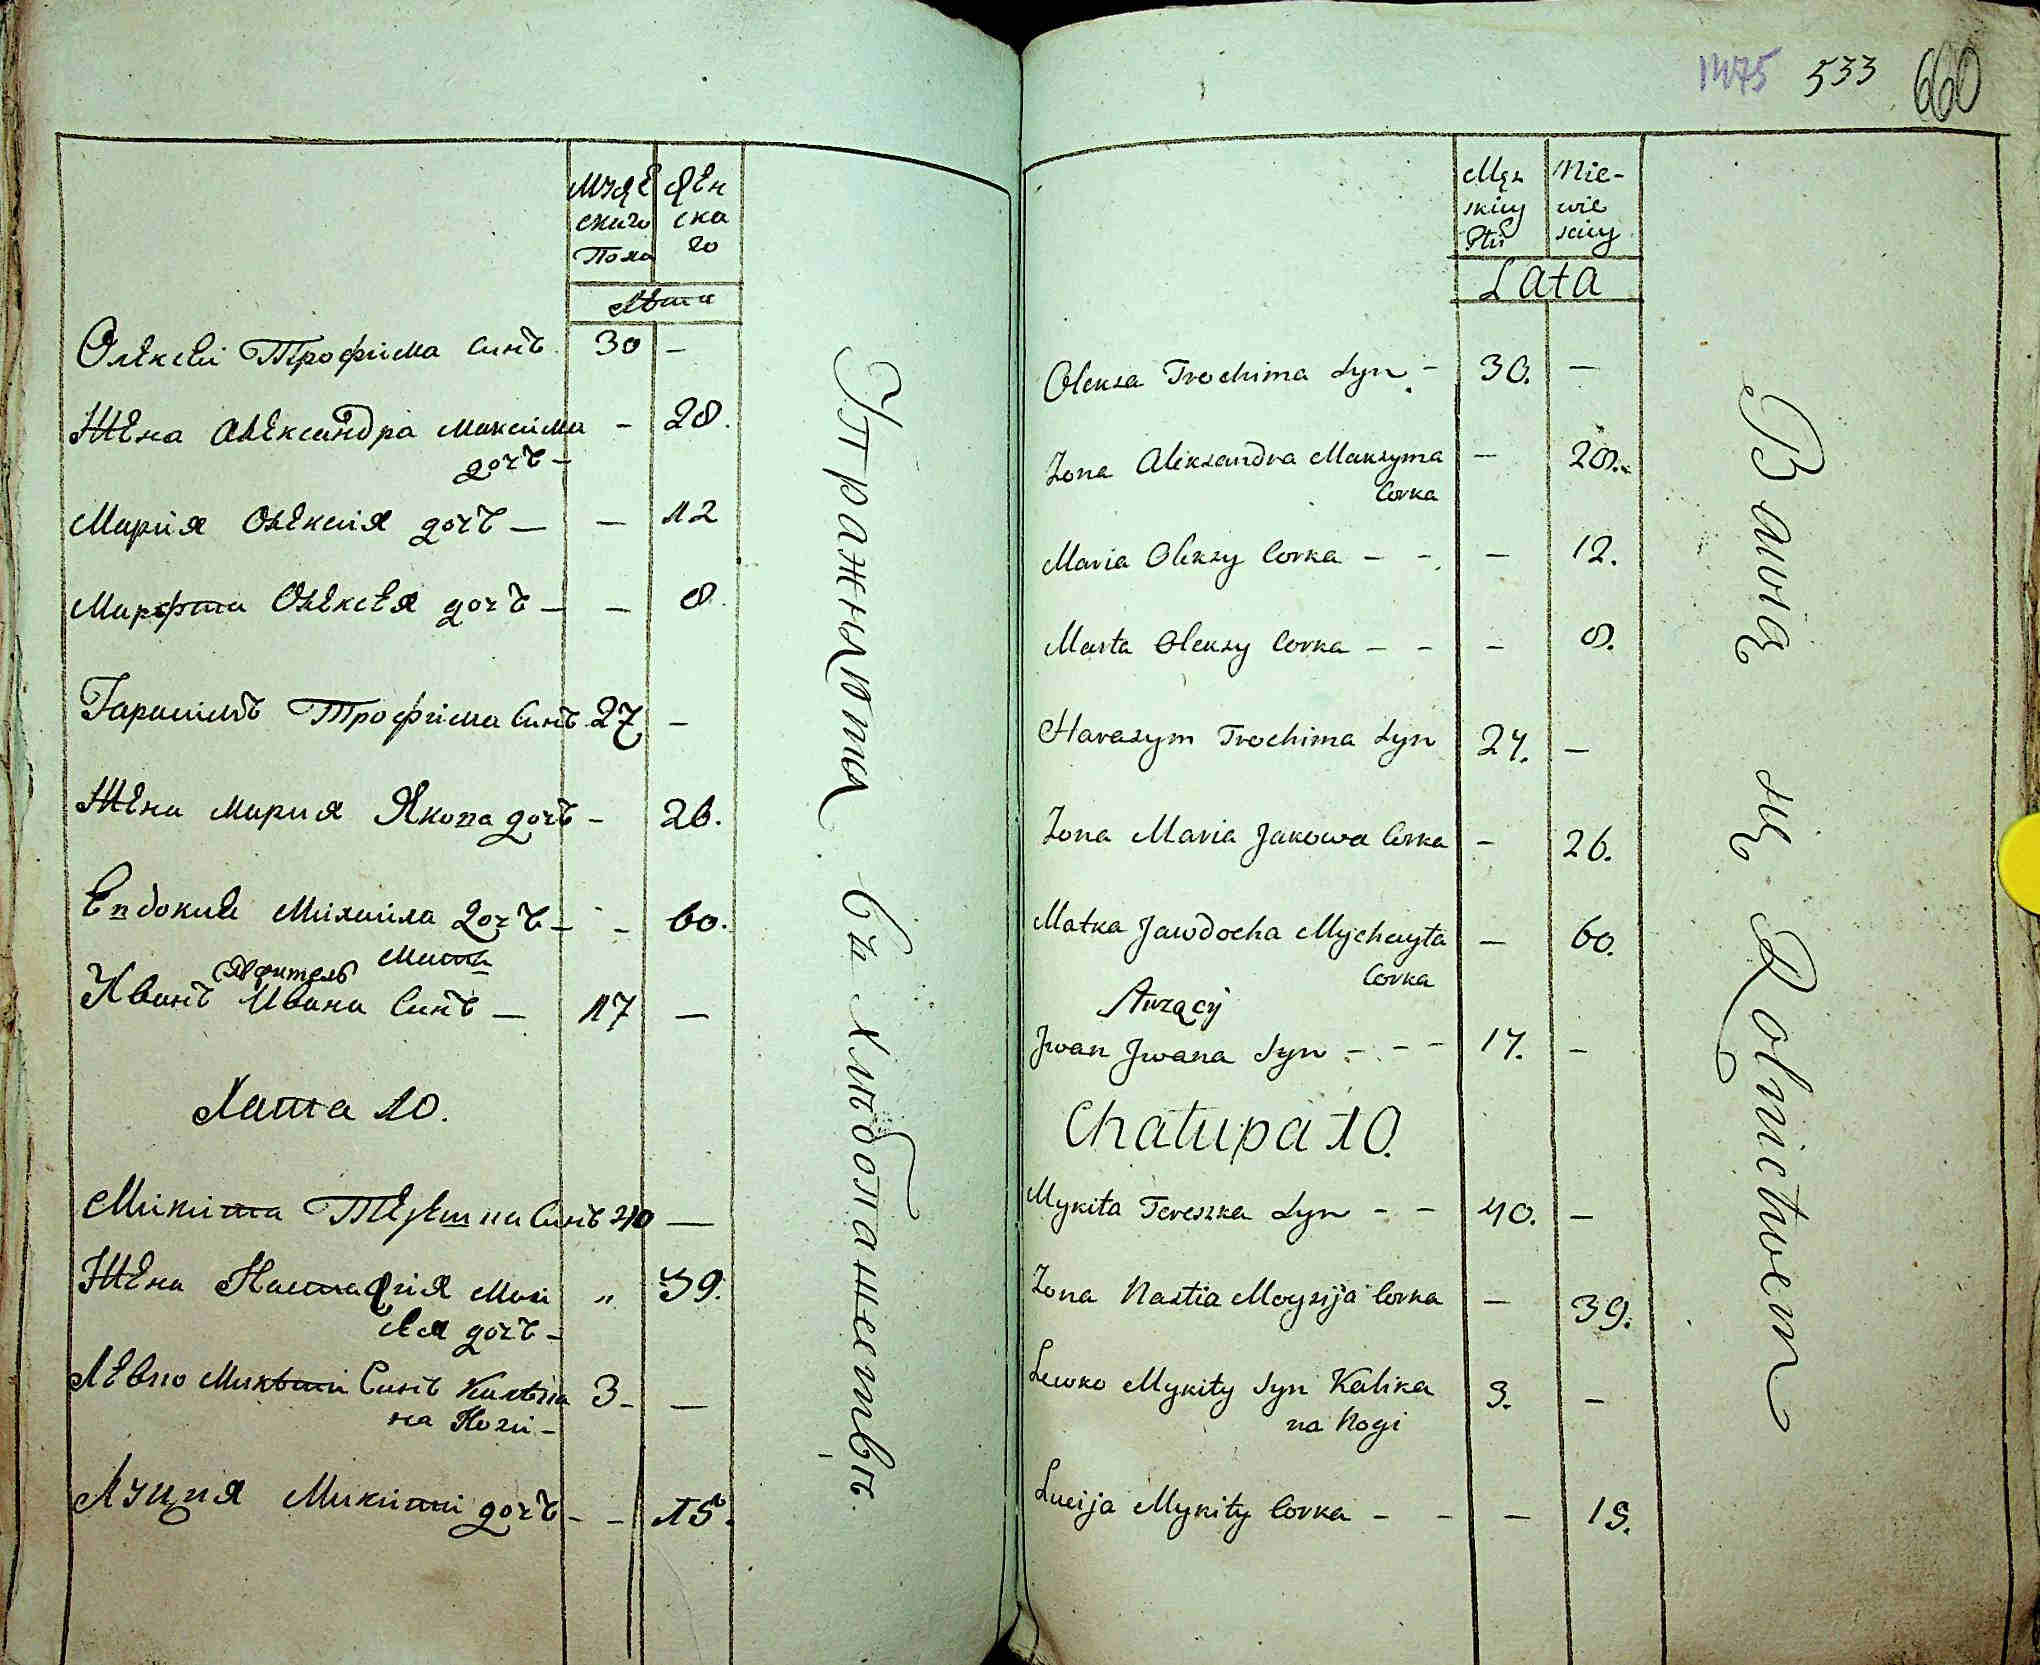 мужескаго пола
женскаго
Лѣта
Олексей Трофима синъ 30 —
Жена Александра Максима — 28.
дочъ —
Мария Олексия дочъ — — 12
Марфта Олексея дочъ — — 8.
Гарасимъ Трофима синъ 27 —
Жена Мария Якова дочъ — 26.
Евдокия Михайла дочъ — — 60.
Мати
Иванъ Ивана синъ — 17 —
Хата 10.
Микита Терешка синъ 40 —
Жена Настасия Мой „ 39.
сея дочъ —
Левко Микити синъ Калѣка 3 — —
на ноги —
Луция Микити дочъ — — 15.
Упражняются въ хлѣбопашествѣ.
1475 533 660
Męzkiey Płci
Niewieściey
Lata
Olexa Trochima Syn — 30. —
Żona Alexandra Maxyma — 28.
Corka
Maria Olexy Corka — — — 12.
Marta Olexy Corka — — — 8.
Harasym Trochima Syn 27. —
Żona Maria Jakowa Corka — 26.
Matka Jawdocha Mychayła — 60.
Corka
Służący
Jwan Jwana Syn — — — 17. —
Chałupa 10.
Mykita Tereszka Syn — — 40. —
Żona Nastia Moysija Corka — 39.
Lewko Mykity Syn Kalika 3. —
na Nogi
Lucija Mykity Corka — — — 15.
Bawią się Rolnictwem